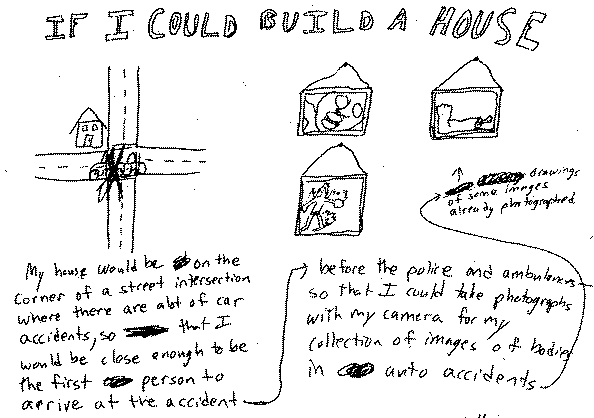 IF I COULD BUILD A HOUSE
drawings
of some images
already photographed
My house would be on the
corner of a street intersection
where there are alot of car
accidents, so that I
would be close enough to be
the first person to
arrive at the accident
before the police and ambulances
so that I could take photographs
with my camera for my
collection of images of bodies
in auto accidents